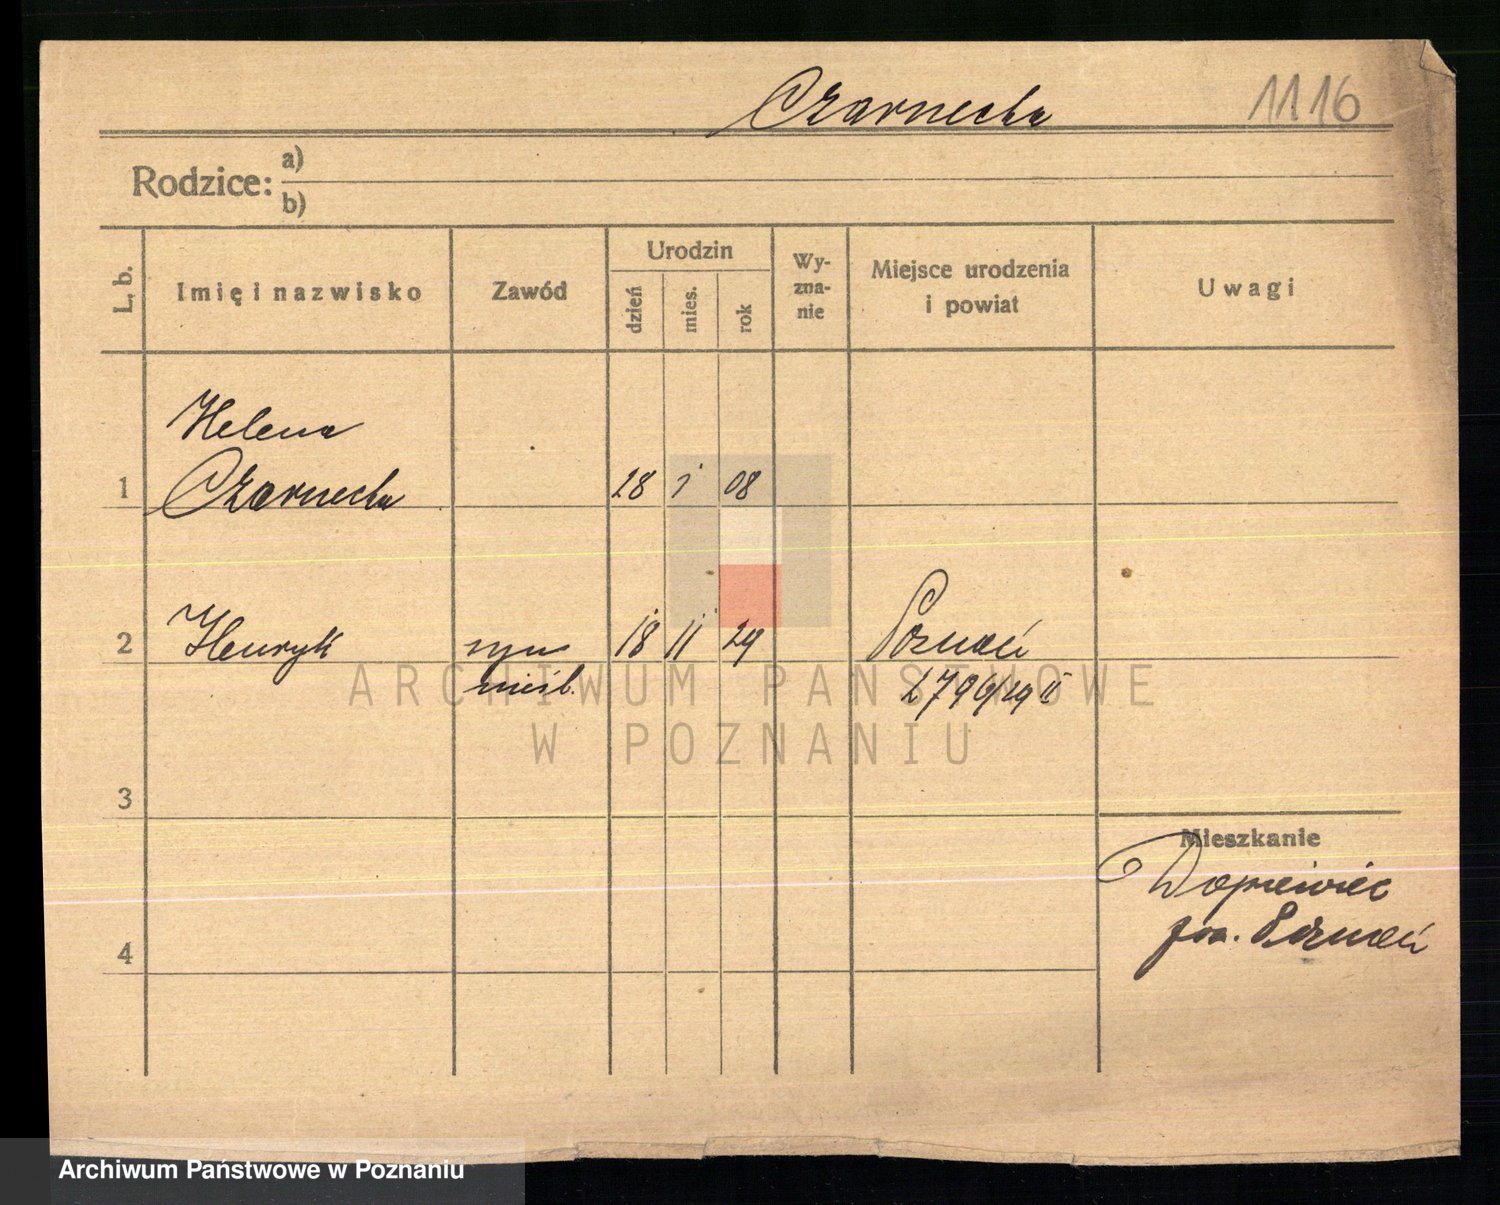 Czarnecka 1116
Rodzice: a)
b)
L. b. Imię i nazwisko Zawód Urodzin dzień mies. rok Wy-zna-nie Miejsce urodzenia i powiat Uwagi
Helena
1 Czarnecka 28 1 08
2 Henryk syn 18 11 29 Poznań
nieśl. 2796/29 II
ARCHIWUM PAŃSTWOWE
W POZNANIU
3
Mieszkanie
Dopiewiec
4 pow. Poznań
Archiwum Państwowe w Poznaniu